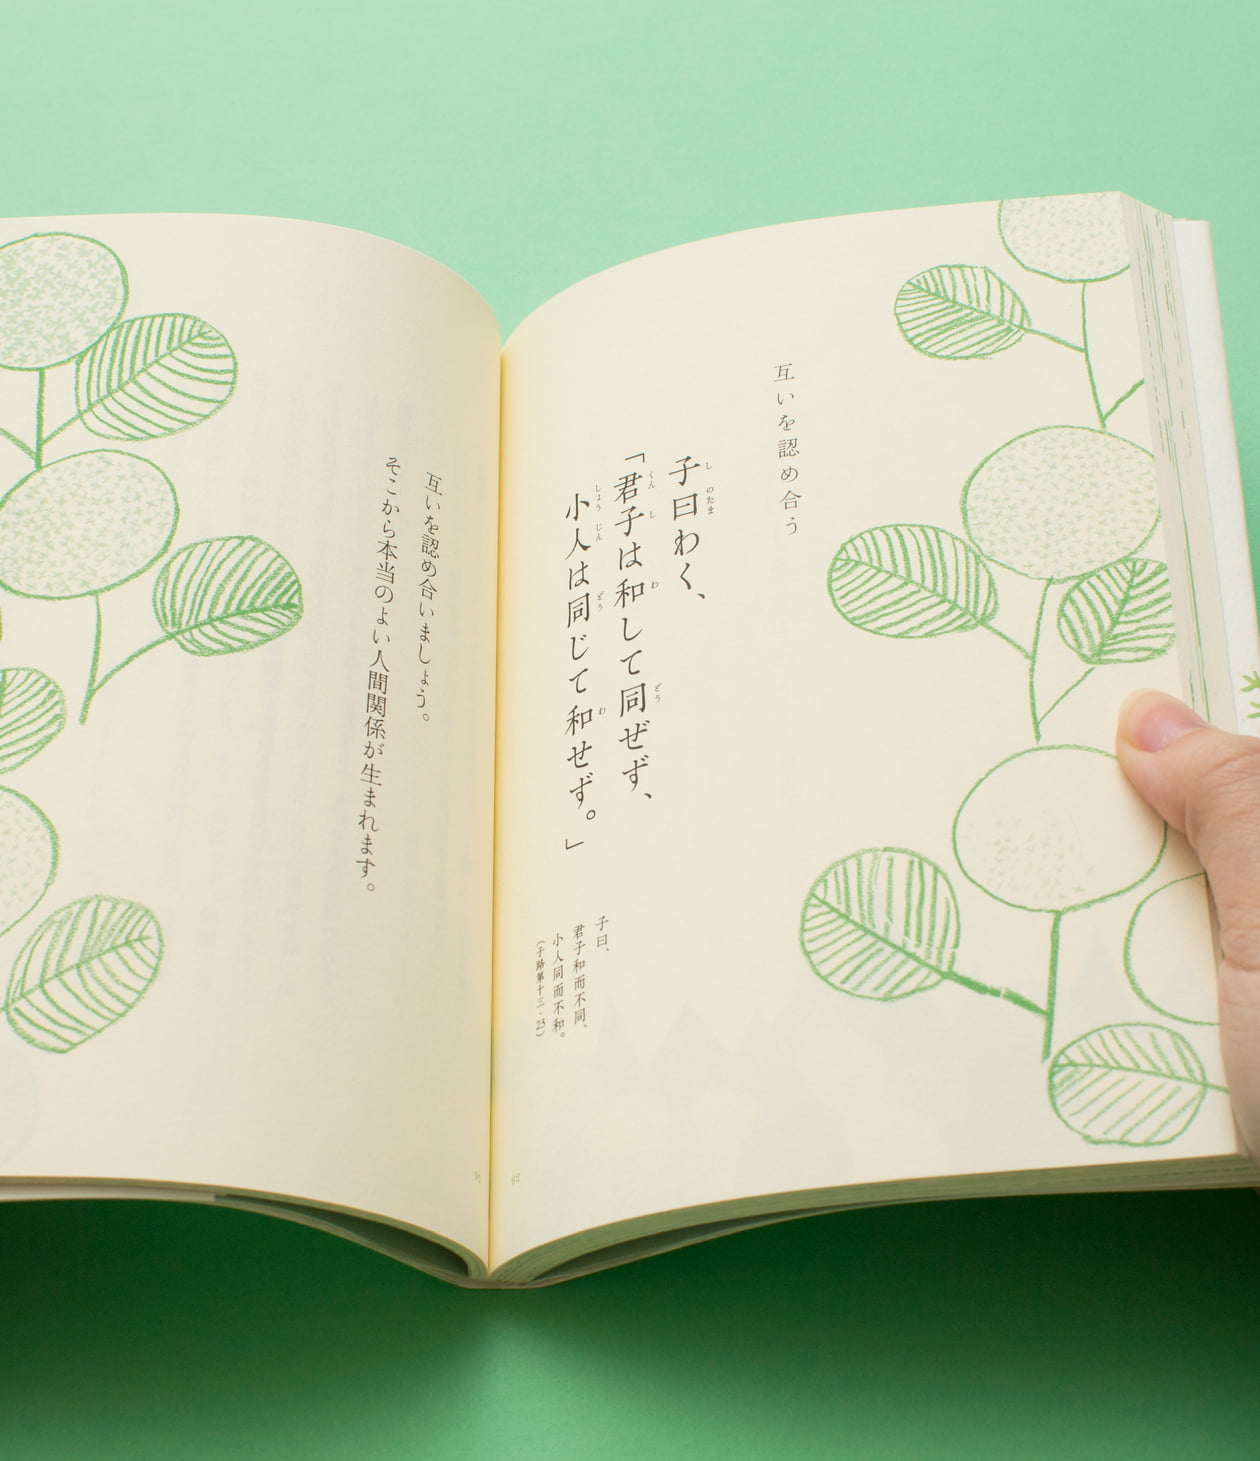 互いを認め合う
子曰わく、
「君子は和して同ぜず、
小人は同じて和せず。」
子曰、
君子和而不同、
小人同而不和。
(子路第十三・23)
互いを認め合いましょう。
そこから本当のよい人間関係が生まれます。
92